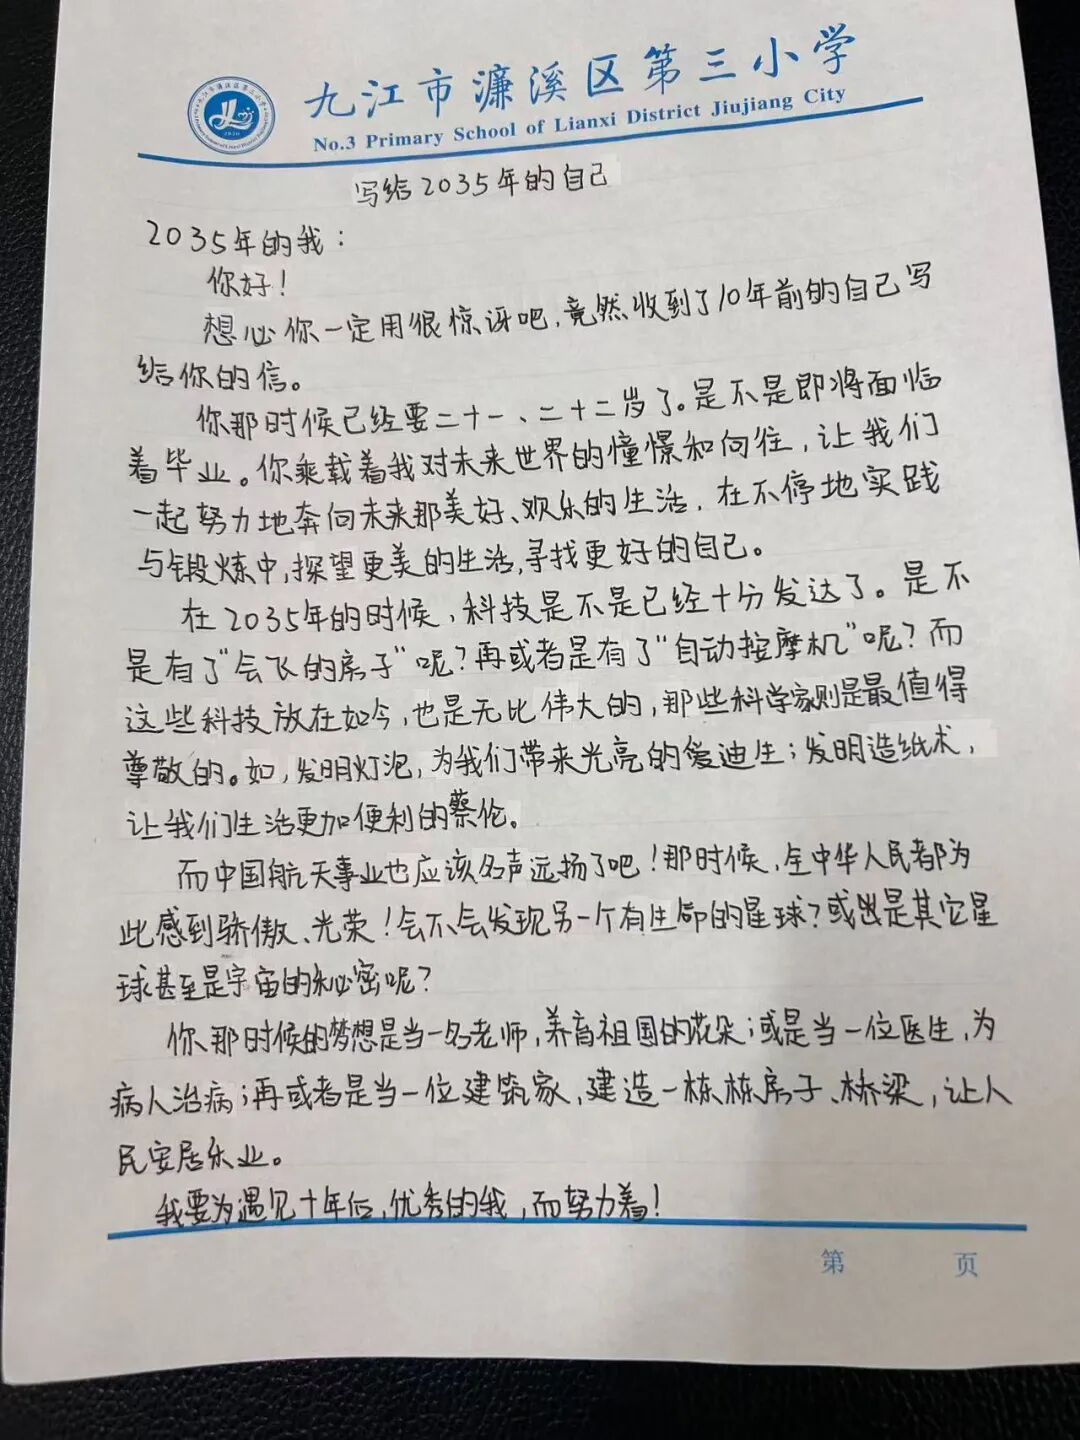 九江市濂溪区第三小学
No.3 Primary School of Lianxi District Jiujiang City
2020
写给2035年的自己
2035年的我：
你好！
想必你一定用很惊讶吧，竟然收到了10年前的自己写
给你的信。
你那时候已经要二十一、二十二岁了。是不是即将面临
着毕业。你乘载着我对未来世界的憧憬和向往，让我们
一起努力地奔向未来那美好、欢乐的生活，在不停地实践
与锻炼中，探望更美的生活，寻找更好的自己。
在2035年的时候，科技是不是已经十分发达了。是不
是有了“会飞的房子”呢？再或者是有了“自动按摩机”呢？而
这些科技放在如今，也是无比伟大的，那些科学家则是最值得
尊敬的。如，发明灯泡，为我们带来光亮的爱迪生；发明造纸术，
让我们生活更加便利的蔡伦。
而中国航天事业也应该名声远扬了吧！那时候，全中华人民都为
此感到骄傲、光荣！会不会发现另一个有生命的星球？或出是其它星
球甚至是宇宙的秘密呢？
你那时候的梦想是当一名老师，养育祖国的花朵；或是当一位医生，为
病人治病；再或者是当一位建筑家，建造一栋栋房子、桥梁，让人
民安居乐业。
我要为遇见十年后，优秀的我，而努力着！
第 页